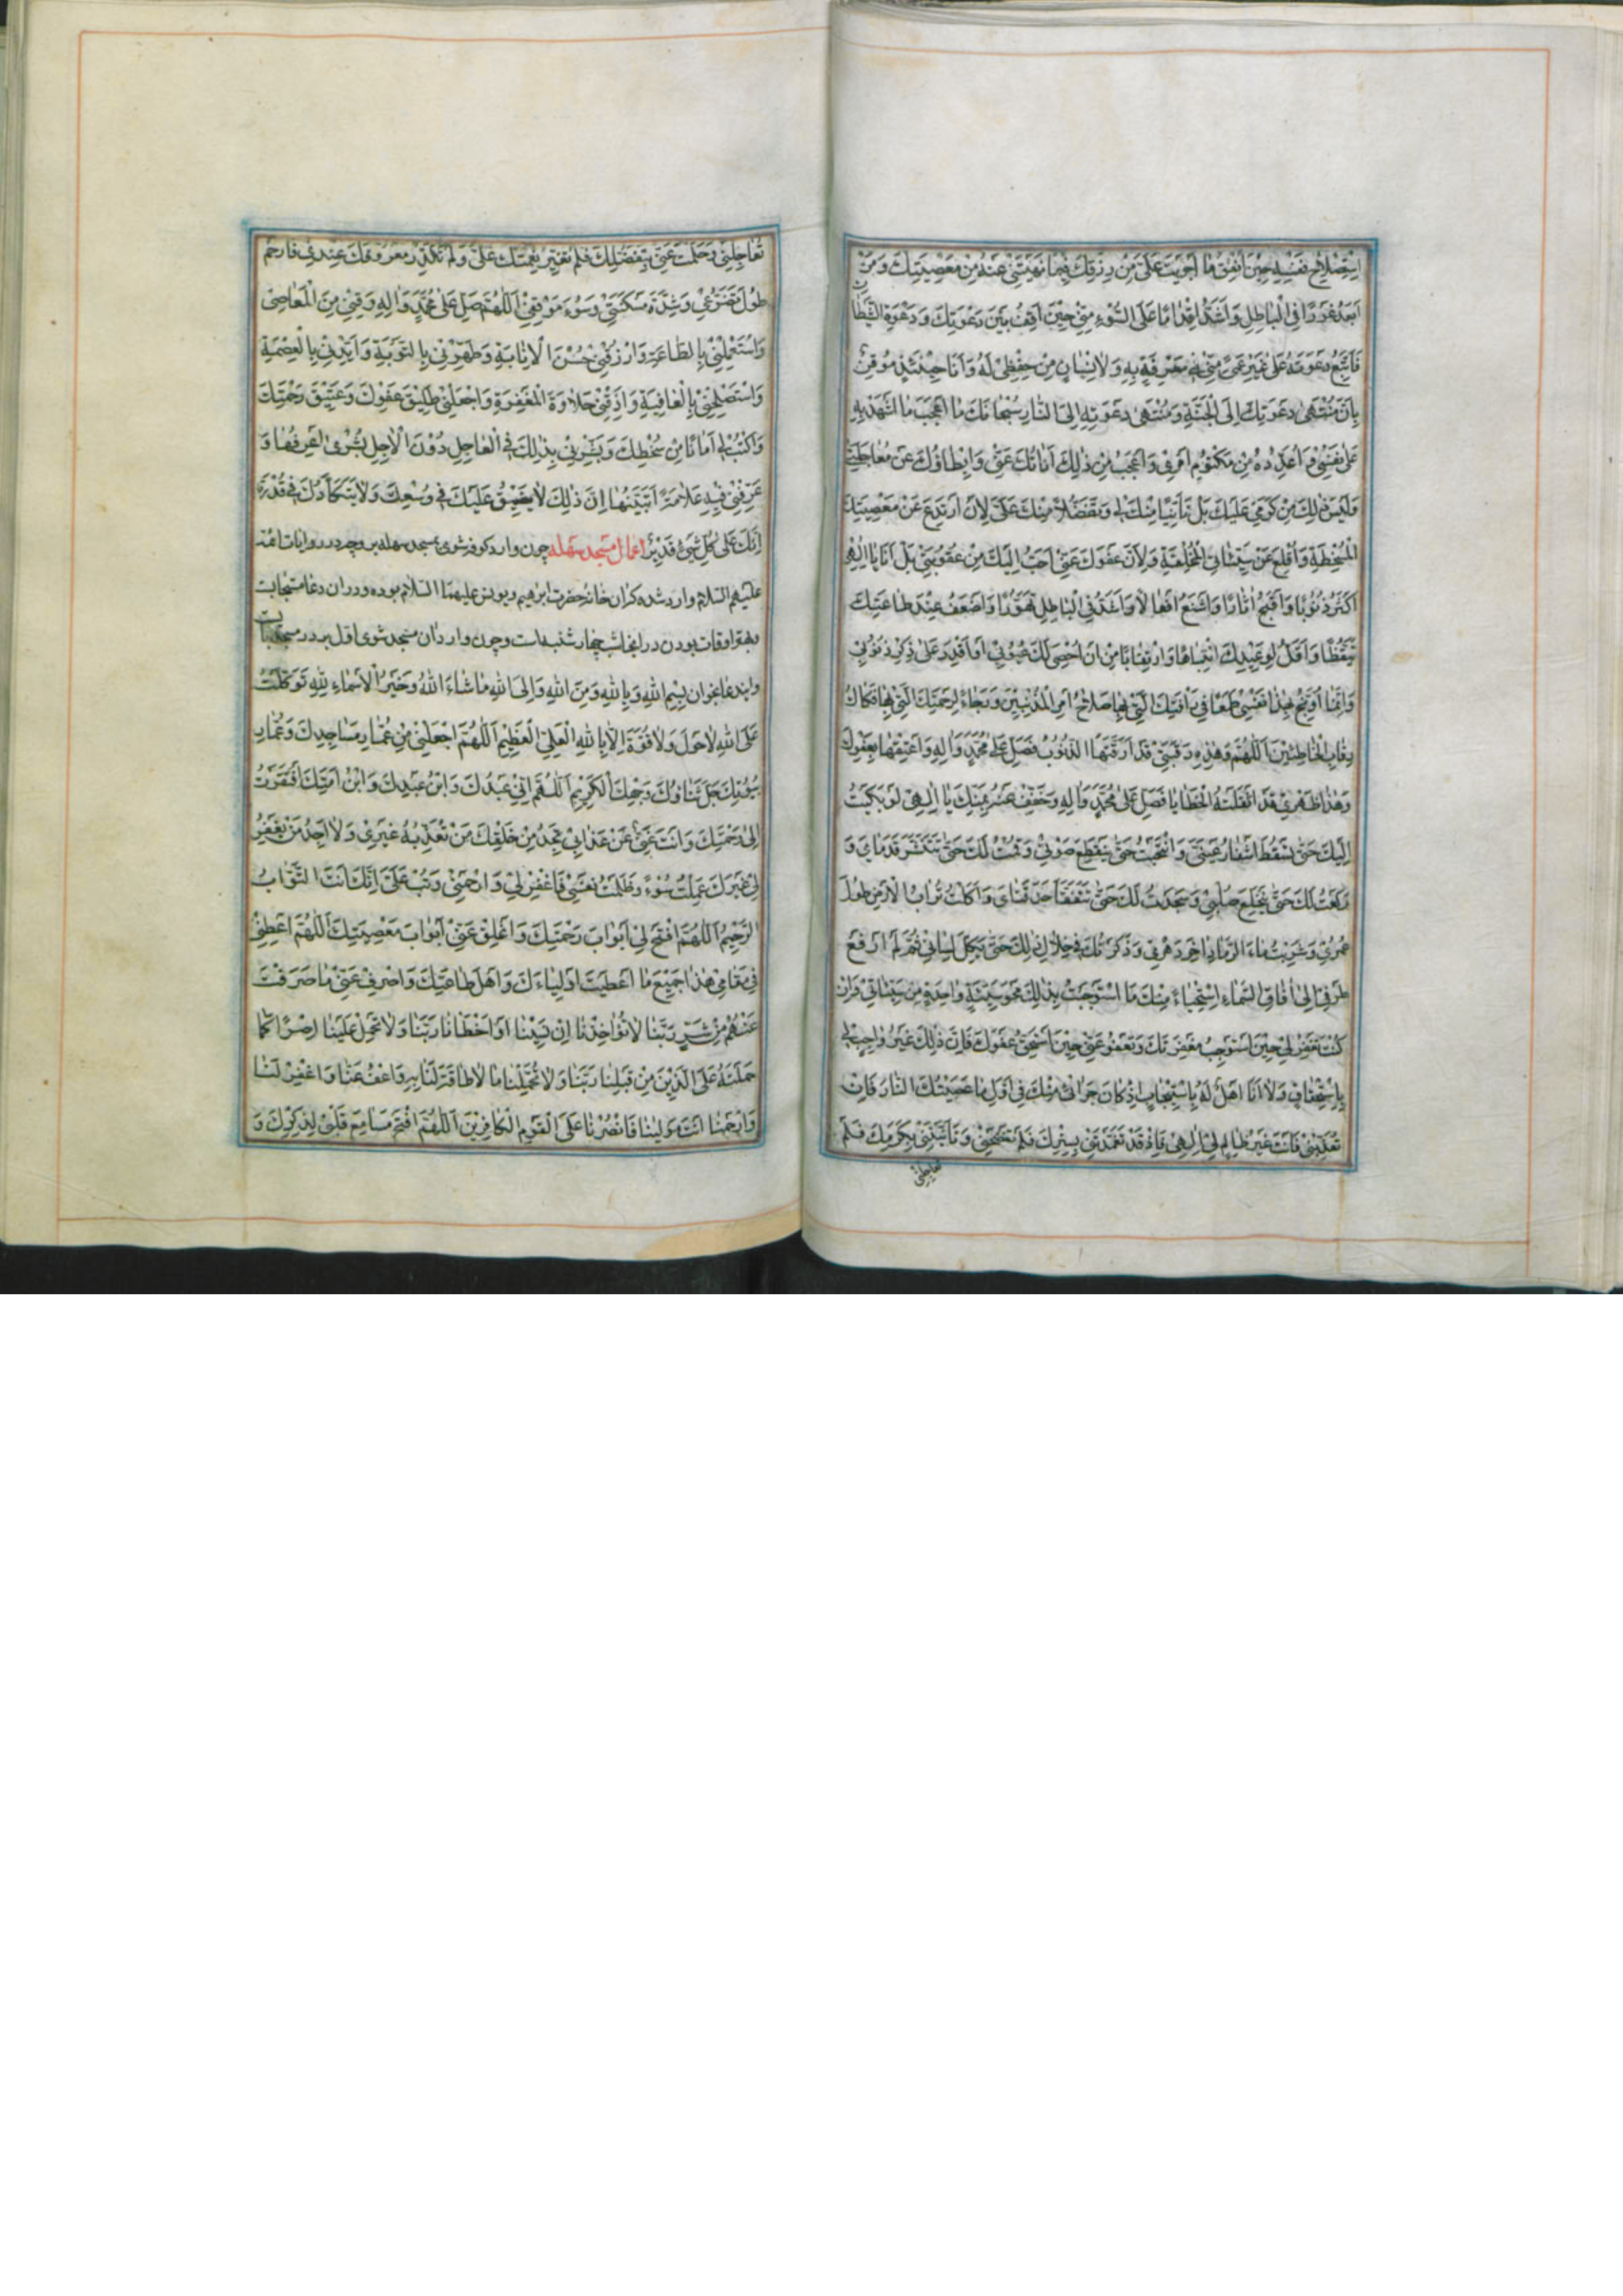 اِسْتِصْلاحِ نَفْسِهِ حِيْنَ اُنْفِقُ مٰا اَجْرَيْتَ عَلَيَّ مِنْ رِزْقِكَ فِيمٰا نَهَيْتَنِي عَنْهُ مِنْ مَعْصِيَتِكَ وَمَنْ
اَبْعَدُ غَوْرًا فِي الْبٰاطِلِ وَاَشَدُّ اِقْدٰامًا عَلَى السُّوۤءِ مِنِّي حِيْنَ اَقِفُ بَيْنَ دَعْوَتِكَ وَدَعْوَةِ الشَّيْطٰانِ
فَاَتَّبِعُ دَعْوَتَهُ عَلىٰ غَيْرِ عَمًى مِنِّي فِي مَعْرِفَةٍ بِهِ وَلاٰنِسْيٰانٍ مِنْ حِفْظِي لَهُ وَاَنَا حِيْنَئِذٍ مُوقِنٌ
بِاَنَّ مُنْتَهىٰ دَعْوَتِكَ اِلَى الْجَنَّةِ وَمُنْتَهىٰ دَعْوَتِهِ اِلَى النّٰارِ سُبْحٰانَكَ مٰا اَعْجَبَ مٰا اَشْهَدُ بِهِ
عَلىٰ نَفْسِي وَاُعَدِّدُهُ مِنْ مَكْتُومِ اَمْرِي وَاَعْجَبُ مِنْ ذٰلِكَ اَنٰاتُكَ عَنِّي وَاِبْطٰاؤُكَ عَنْ مُعٰاجَلَتِي
وَلَيْسَ ذٰلِكَ مِنْ كَرَمِي عَلَيْكَ بَلْ تَاَنِّيًا مِنْكَ لِي وَتَفَضُّلاً مِنْكَ عَلَيَّ لِاَنْ اَرْتَدِعَ عَنْ مَعْصِيَتِكَ
الْمُسْخِطَةِ وَاُقْلِعَ عَنْ سَيِّئٰاتِيَ الْمُخْلِقَةِ وَلِاَنَّ عَفْوَكَ عَنِّي اَحَبُّ اِلَيْكَ مِنْ عُقُوبَتِي بَلْ اَنَا يٰا اِلٰهِي
اَكْثَرُ ذُنُوبًا وَاَقْبَحُ اٰثٰارًا وَاَشْنَعُ اَفْعٰالاً وَاَشَدُّ فِي الْبٰاطِلِ تَهَوُّرًا وَاَضْعَفُ عِنْدَ طٰاعَتِكَ
تَيَقُّظًا وَاَقَلُّ لِوَعِيْدِكَ انْتِبٰاهًا وَارْتِقٰابًا مِنْ اَنْ اُحْصِيَ لَكَ عُيُوبِي اَوْ اَقْدِرَ عَلىٰ ذِكْرِ ذُنُوبِي
وَاِنَّمٰا اُوَبِّخُ بِهٰذٰا نَفْسِي طَمَعًا فِي رَاْفَتِكَ الَّتِي بِهٰا صَلاٰحُ اَمْرِ الْمُذْنِبِيْنَ وَرَجٰاءً لِرَحْمَتِكَ الَّتِي بِهٰا فَكٰاكُ
رِقٰابِ الْخٰاطِئِيْنَ اَللّٰهُمَّ وَهٰذِهِ رَقَبَتِي قَدْ اَرَقَّتْهَا الذُّنُوبُ فَصَلِّ عَلىٰ مُحَمَّدٍ وَاٰلِهِ وَاَعْتِقْهٰا بِعَفْوِكَ
وَهٰذٰا ظَهْرِي قَدْ اَثْقَلَتْهُ الْخَطٰايٰا فَصَلِّ عَلىٰ مُحَمَّدٍ وَاٰلِهِ وَخَفِّفْ عَنْهُ بِمَنِّكَ يٰا اِلٰهِي لَوْ بَكَيْتُ
اِلَيْكَ حَتّٰى تَسْقُطَ اَشْفٰارُ عَيْنَيَّ وَانْتَحَبْتُ حَتّٰى يَنْقَطِعَ صَوْتِي وَقُمْتُ لَكَ حَتّٰى تَتَنَشَّرَ قَدَمٰايَ وَ
رَكَعْتُ لَكَ حَتّٰى يَنْخَلِعَ صُلْبِي وَسَجَدْتُ لَكَ حَتّٰى تَتَفَقَّأَ حَدَقَتٰايَ وَاَكَلْتُ تُرٰابَ الْاَرْضِ طُولَ
عُمْرِي وَشَرِبْتُ مٰاءَ الرَّمٰادِ اٰخِرَ دَهْرِي وَذَكَرْتُكَ فِي خِلاٰلِ ذٰلِكَ حَتّٰى يَكِلَّ لِسٰانِي ثُمَّ لَمْ اَرْفَعْ
طَرْفِي اِلىٰ اٰفٰاقِ السَّمٰاءِ اِسْتِحْيٰاءً مِنْكَ مَا اسْتَوْجَبْتُ بِذٰلِكَ مَحْوَ سَيِّئَةٍ وٰاحِدَةٍ مِنْ سَيِّئٰاتِي وَاِنْ
كُنْتَ تَغْفِرُ لِي حِيْنَ اَسْتَوْجِبُ مَغْفِرَتَكَ وَتَعْفُو عَنِّي حِيْنَ اَسْتَحِقُّ عَفْوَكَ فَاِنَّ ذٰلِكَ غَيْرُ وٰاجِبٍ لِي
بِاسْتِحْقٰاقٍ وَلاٰ اَنَا اَهْلٌ لَهُ بِاسْتِيجٰابٍ اِذْ كٰانَ جَزٰائِي مِنْكَ فِي اَوَّلِ مٰا عَصَيْتُكَ النّٰارَ فَاِنْ
تُعَذِّبْنِي فَاَنْتَ غَيْرُ ظٰالِمٍ لِي اِلٰهِي فَاِذْ قَدْ تَغَمَّدْتَنِي بِسِتْرِكَ فَلَمْ تَفْضَحْنِي وَتَاَنَّيْتَنِي بِكَرَمِكَ فَلَمْ
تعاجلنی
تُعٰاجِلْنِي وَحَلُمْتَ عَنِّي بِتَفَضُّلِكَ فَلَمْ تُغَيِّرْ نِعْمَتَكَ عَلَيَّ وَلَمْ تُكَدِّرْ مَعْرُوفَكَ عِنْدِي فَارْحَمْ
طُولَ تَضَرُّعِي وَشِدَّةَ مَسْكَنَتِي وَسُوۤءَ مَوْقِفِي اَللّٰهُمَّ صَلِّ عَلىٰ مُحَمَّدٍ وَاٰلِهِ وَقِنِي مِنَ الْمَعٰاصِي
وَاسْتَعْمِلْنِي بِالطّٰاعَةِ وَارْزُقْنِي حُسْنَ الْاِنٰابَةِ وَطَهِّرْنِي بِالتَّوْبَةِ وَاَيِّدْنِي بِالْعِصْمَةِ
وَاسْتَصْلِحْنِي بِالْعٰافِيَةِ وَاَذِقْنِي حَلاٰوَةَ الْمَغْفِرَةِ وَاجْعَلْنِي طَلِيْقَ عَفْوِكَ وَعَتِيْقَ رَحْمَتِكَ
وَاكْتُبْ لِي اَمٰانًا مِنْ سُخْطِكَ وَبَشِّرْنِي بِذٰلِكَ فِي الْعٰاجِلِ دُوْنَ الْاٰجِلِ بُشْرىٰ اَعْرِفُهٰا وَ
عَرِّفْنِي فِيهِ عَلاٰمَةً اَتَبَيَّنُهٰا اِنَّ ذٰلِكَ لاٰ يَضِيْقُ عَلَيْكَ فِي وُسْعِكَ وَلاٰ يَتَكَأَّدُكَ فِي قُدْرَتِكَ
اِنَّكَ عَلىٰ كُلِّ شَيْءٍ قَدِيْرٌ اعمال مسجد سهله چون وارد کوفه شوی بمسجد سهله برو چه در روایات ائمّه
علیهم السّلام وارد شده که ان خانهٔ حضرت ابراهیم و یونس علیهما السّلام بوده و در ان دعا مستجابست
و بهتر اوقات بودن در اینجا شب چهار شنبه است و چون وارد ان مسجد شوی اوّل بر در مسجد بایست
و این دعا بخوان بِسْمِ اللهِ وَبِاللهِ وَمِنَ اللهِ وَاِلَى اللهِ مٰا شٰاءَ اللهُ وَخَيْرُ الْاَسْمٰاءِ لِلّٰهِ تَوَكَّلْتُ
عَلَى اللهِ لاٰحَوْلَ وَلاٰ قُوَّةَ اِلاّٰ بِاللهِ الْعَلِيِّ الْعَظِيْمِ اَللّٰهُمَّ اجْعَلْنِي مِنْ عُمّٰارِ مَسٰاجِدِكَ وَعُمّٰارِ
بُيُوتِكَ جَلَّ ثَنٰاؤُكَ وَجْهِكَ الْكَرِيْمِ اَللّٰهُمَّ اِنِّي عَبْدُكَ وَابْنُ عَبْدِكَ وَابْنُ اَمَتِكَ افْتَقَرْتُ
اِلىٰ رَحْمَتِكَ وَاَنْتَ غَنِيٌّ عَنْ عَذٰابِي تَجِدُ مِنْ خَلْقِكَ مَنْ تُعَذِّبُهُ غَيْرِي وَلاٰ اَجِدُ مَنْ يَغْفِرُ
لِي غَيْرَكَ عَمِلْتُ سُوۤءً وَظَلَمْتُ نَفْسِي فَاغْفِرْ لِي وَارْحَمْنِي وَتُبْ عَلَيَّ اِنَّكَ اَنْتَ التَّوّٰابُ
الرَّحِيْمُ اَللّٰهُمَّ افْتَحْ لِي اَبْوٰابَ رَحْمَتِكَ وَاَغْلِقْ عَنِّي اَبْوٰابَ مَعْصِيَتِكَ اَللّٰهُمَّ اَعْطِنِي
فِي مَقٰامِي هٰذٰا جَمِيْعَ مٰا اَعْطَيْتَ اَوْلِيٰاءَكَ وَاَهْلَ طٰاعَتِكَ وَاصْرِفْ عَنِّي مٰا صَرَفْتَ
عَنْهُمْ مِنْ شَرٍّ رَبَّنٰا لاٰتُؤٰاخِذْنٰا اِنْ نَسِيْنٰا اَوْ اَخْطَاْنٰا رَبَّنٰا وَلاٰ تَحْمِلْ عَلَيْنٰا اِصْرًا كَمٰا
حَمَلْتَهُ عَلَى الَّذِيْنَ مِنْ قَبْلِنٰا رَبَّنٰا وَلاٰ تُحَمِّلْنٰا مٰا لاٰطٰاقَةَ لَنٰا بِهِ وَاعْفُ عَنّٰا وَاغْفِرْ لَنٰا
وَارْحَمْنٰا اَنْتَ مَوْلٰينٰا فَانْصُرْنٰا عَلَى الْقَوْمِ الْكٰافِرِيْنَ اَللّٰهُمَّ افْتَحْ مَسٰامِعَ قَلْبِي لِذِكْرِكَ وَ